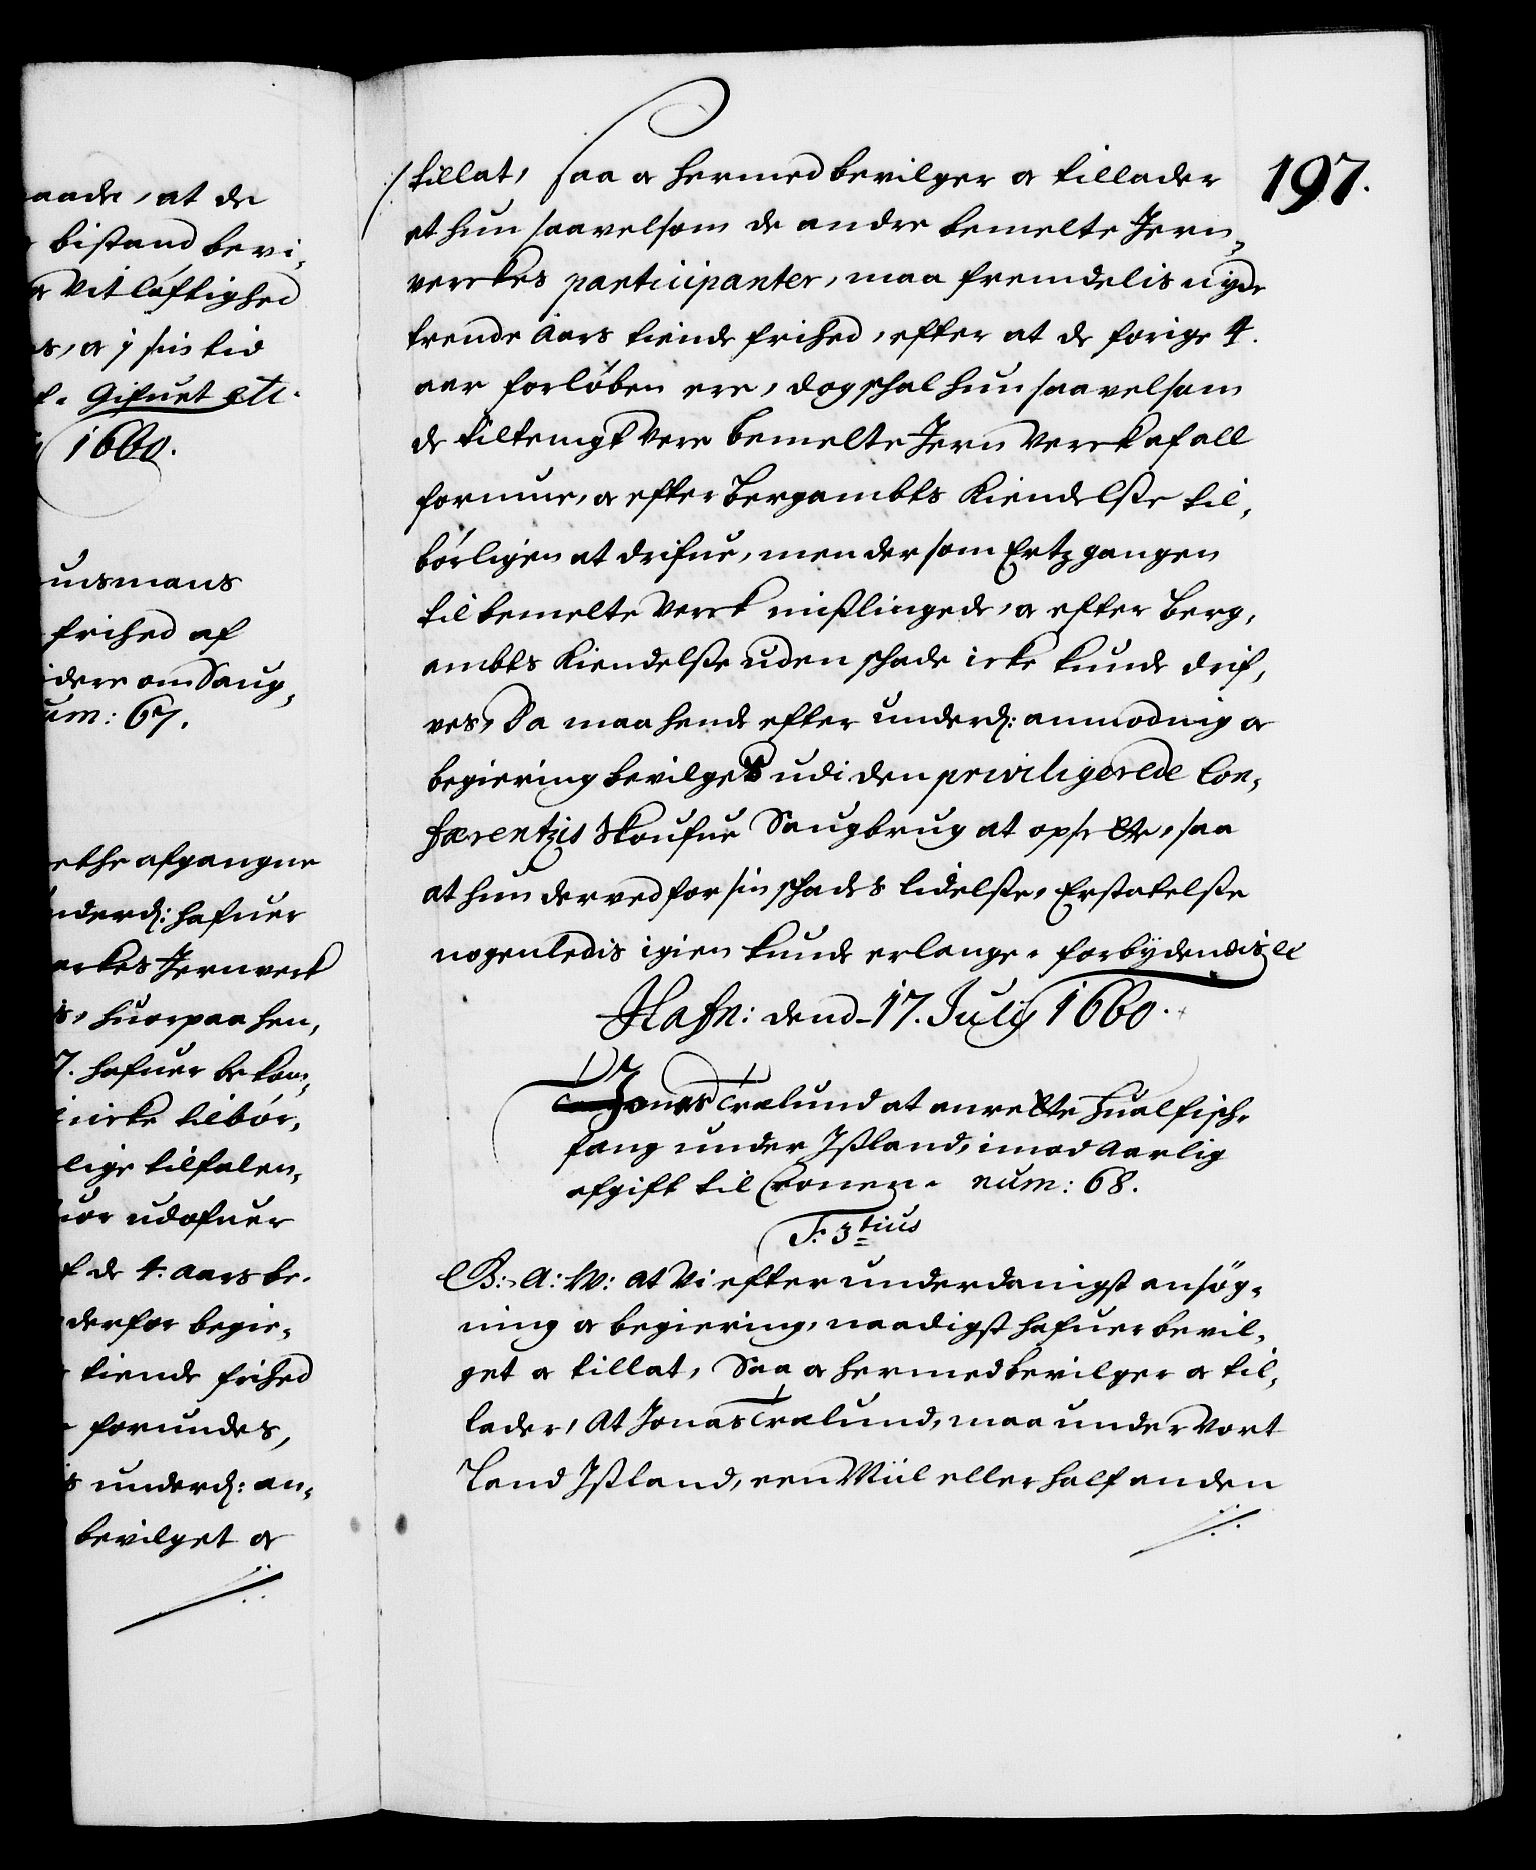 aade, at de
bistand bevi,
Vitløftighed
s, oc i sin tid
Gifuet etc.
1660.
uismans
frihed af
idere om Saug,
um: 67.
ethe afgangne
nderd: hafuer
erkes Jernverk
s, huorpaa hen,
7. hafuer bekom,
icke tilbør,
lige tilfalen,
uor udofuer
f de 4. aars be,
derfor begie,
tiende frihed
forundes,
s underd: an,
bevilget oc
197.
tillat, saa oc hermed bevilger oc tillader
at hun saavelsom de andre bemelte Jern,
verckes participanter, maa fremdelis nyde
trende Aars tiende frihed, efter at de forige 4.
aar forløben ere, dog schal hun saavelsom
de tiltengt vere bemelte Jern Verck af all
formue, oc efter Bergambts Kiendelsse til,
børligen at drifue, men dersom Ertzgangen
til bemelte Verck misslingede, oc efter Berg,
ambts Kiendelsse uden schade icke kunde drif,
ves, Da maa hende efter underd: anmodnig oc
begiering bevilget udi den priviligerede Con,
færentzis Skoufue Saugbrug at oprette, saa
at hun derved for sin schades lidelsse, Erstatelsse
nogenledis igien kunde erlange. forbydendis etc
Hafn: dend 17. Julij 1660.
Jonas Trælund at anrette Hualfisch,
fang under Issland, imod Aarlig
afgift til Cronen. num: 68.
F: 3tius
B: A: W: at Vi efter underdanigst ansøg,
ning oc begiering, naadigst hafuer bevil,
get oc tillat, Saa oc hermed bevilger oc til,
lader, At Jonas Trælund, maa under Vort
Land Issland, een Miil eller half anden